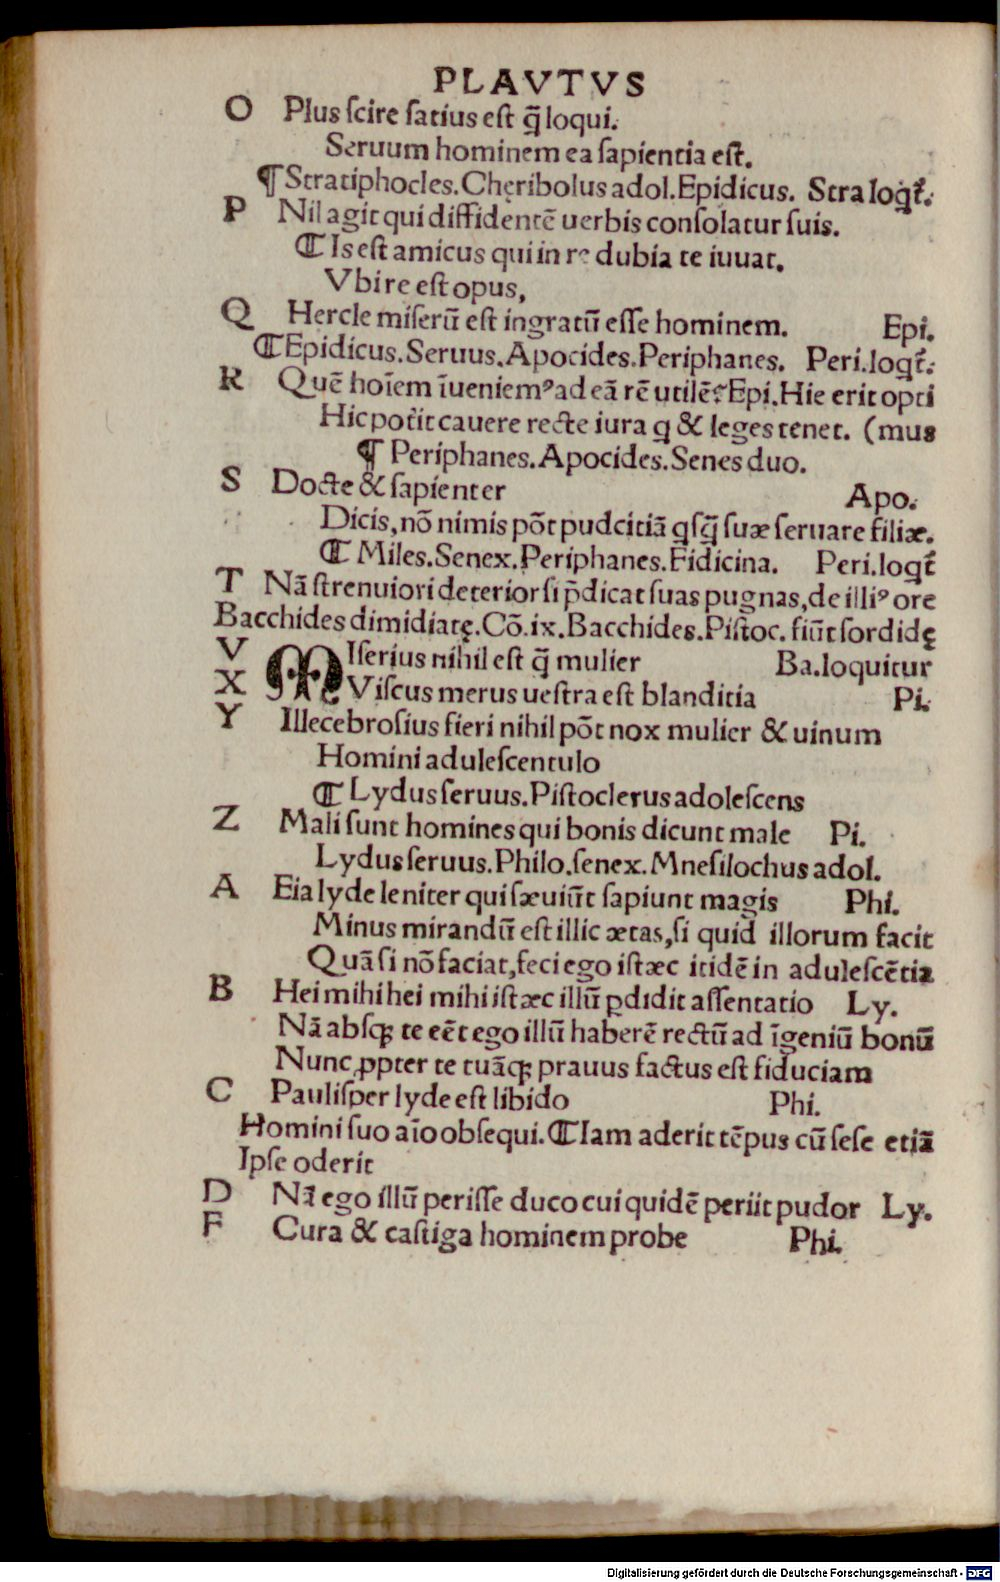 PLAVTVS
O Plus ſcire ſatius eſt q̃ loqui.
Seruum hominem ea ſapientia eſt.
¶ Stratiphocles. Chęribolus adol. Epidicus. Stra loqt̃.
P Nil agit qui diffidentē uerbis conſolatur ſuis.
¶ Is eſt amicus qui in re dubia te iuuat.
Vbi re eſt opus,
Q Hercle miſerū eſt ingratū eſſe hominem. Epi.
¶ Epidicus. Seruus. Apocides. Periphanes. Peri. loqt̃.
R Quē hoīem īueniemꝰ ad eā rē utilē? Epi. Hie erit opti
Hic pot̃it cauere recte iura q & leges tenet. (mus
¶ Periphanes. Apocides. Senes duo.
S Docte & ſapienter Apo.
Dicis, nō nimis pōt pudcitiā qſq̃ ſuæ ſeruare filiæ.
¶ Miles. Senex. Periphanes. Fidicina. Peri. loqt̃
T Nā ſtrenuiori deterior ſi p̄dicat ſuas pugnas, de illiꝰ ore
Bacchides dimidiatę. Cō. ix. Bacchides. Piſtoc. fiūt ſordidę
V MIſerius nihil eſt q̃ mulier Ba. loquitur
X Viſcus merus ueſtra eſt blanditia Pi.
Y Illecebroſius fieri nihil pōt nox mulier & uinum
Homini adulescentulo
¶ Lydus ſeruus. Piſtoclerus adoleſcens
Z Mali ſunt homines qui bonis dicunt male Pi.
Lydus ſeruus. Philo. ſenex. Mneſilochus adol.
A Eia lyde leniter qui ſæuiūt ſapiunt magis Phi.
Minus mirandū eſt illic ætas, ſi quid illorum facit
Quā ſi nō faciat, feci ego iſtæc itidē in aduleſcētia
B Hei mihi hei mihi iſtæc illū ꝑdidit aſſentatio Ly.
Nā abſqꝫ te eēt ego illū haberē rectū ad īgeniū bonū
Nunc ꝓpter te tuāqꝫ prauus factus eſt fiduciam
C Pauliſper lyde eſt libido Phi.
Homini ſuo aīo obſequi. ¶ Iam aderit tēpus cū ſeſe etiā
Ipſe oderit
D Nā ego illū periſſe duco cui quidē periit pudor Ly.
F Cura & caſtiga hominem probe Phi.
Digitalisierung gefördert durch die Deutsche Forschungsgemeinschaft - DFG